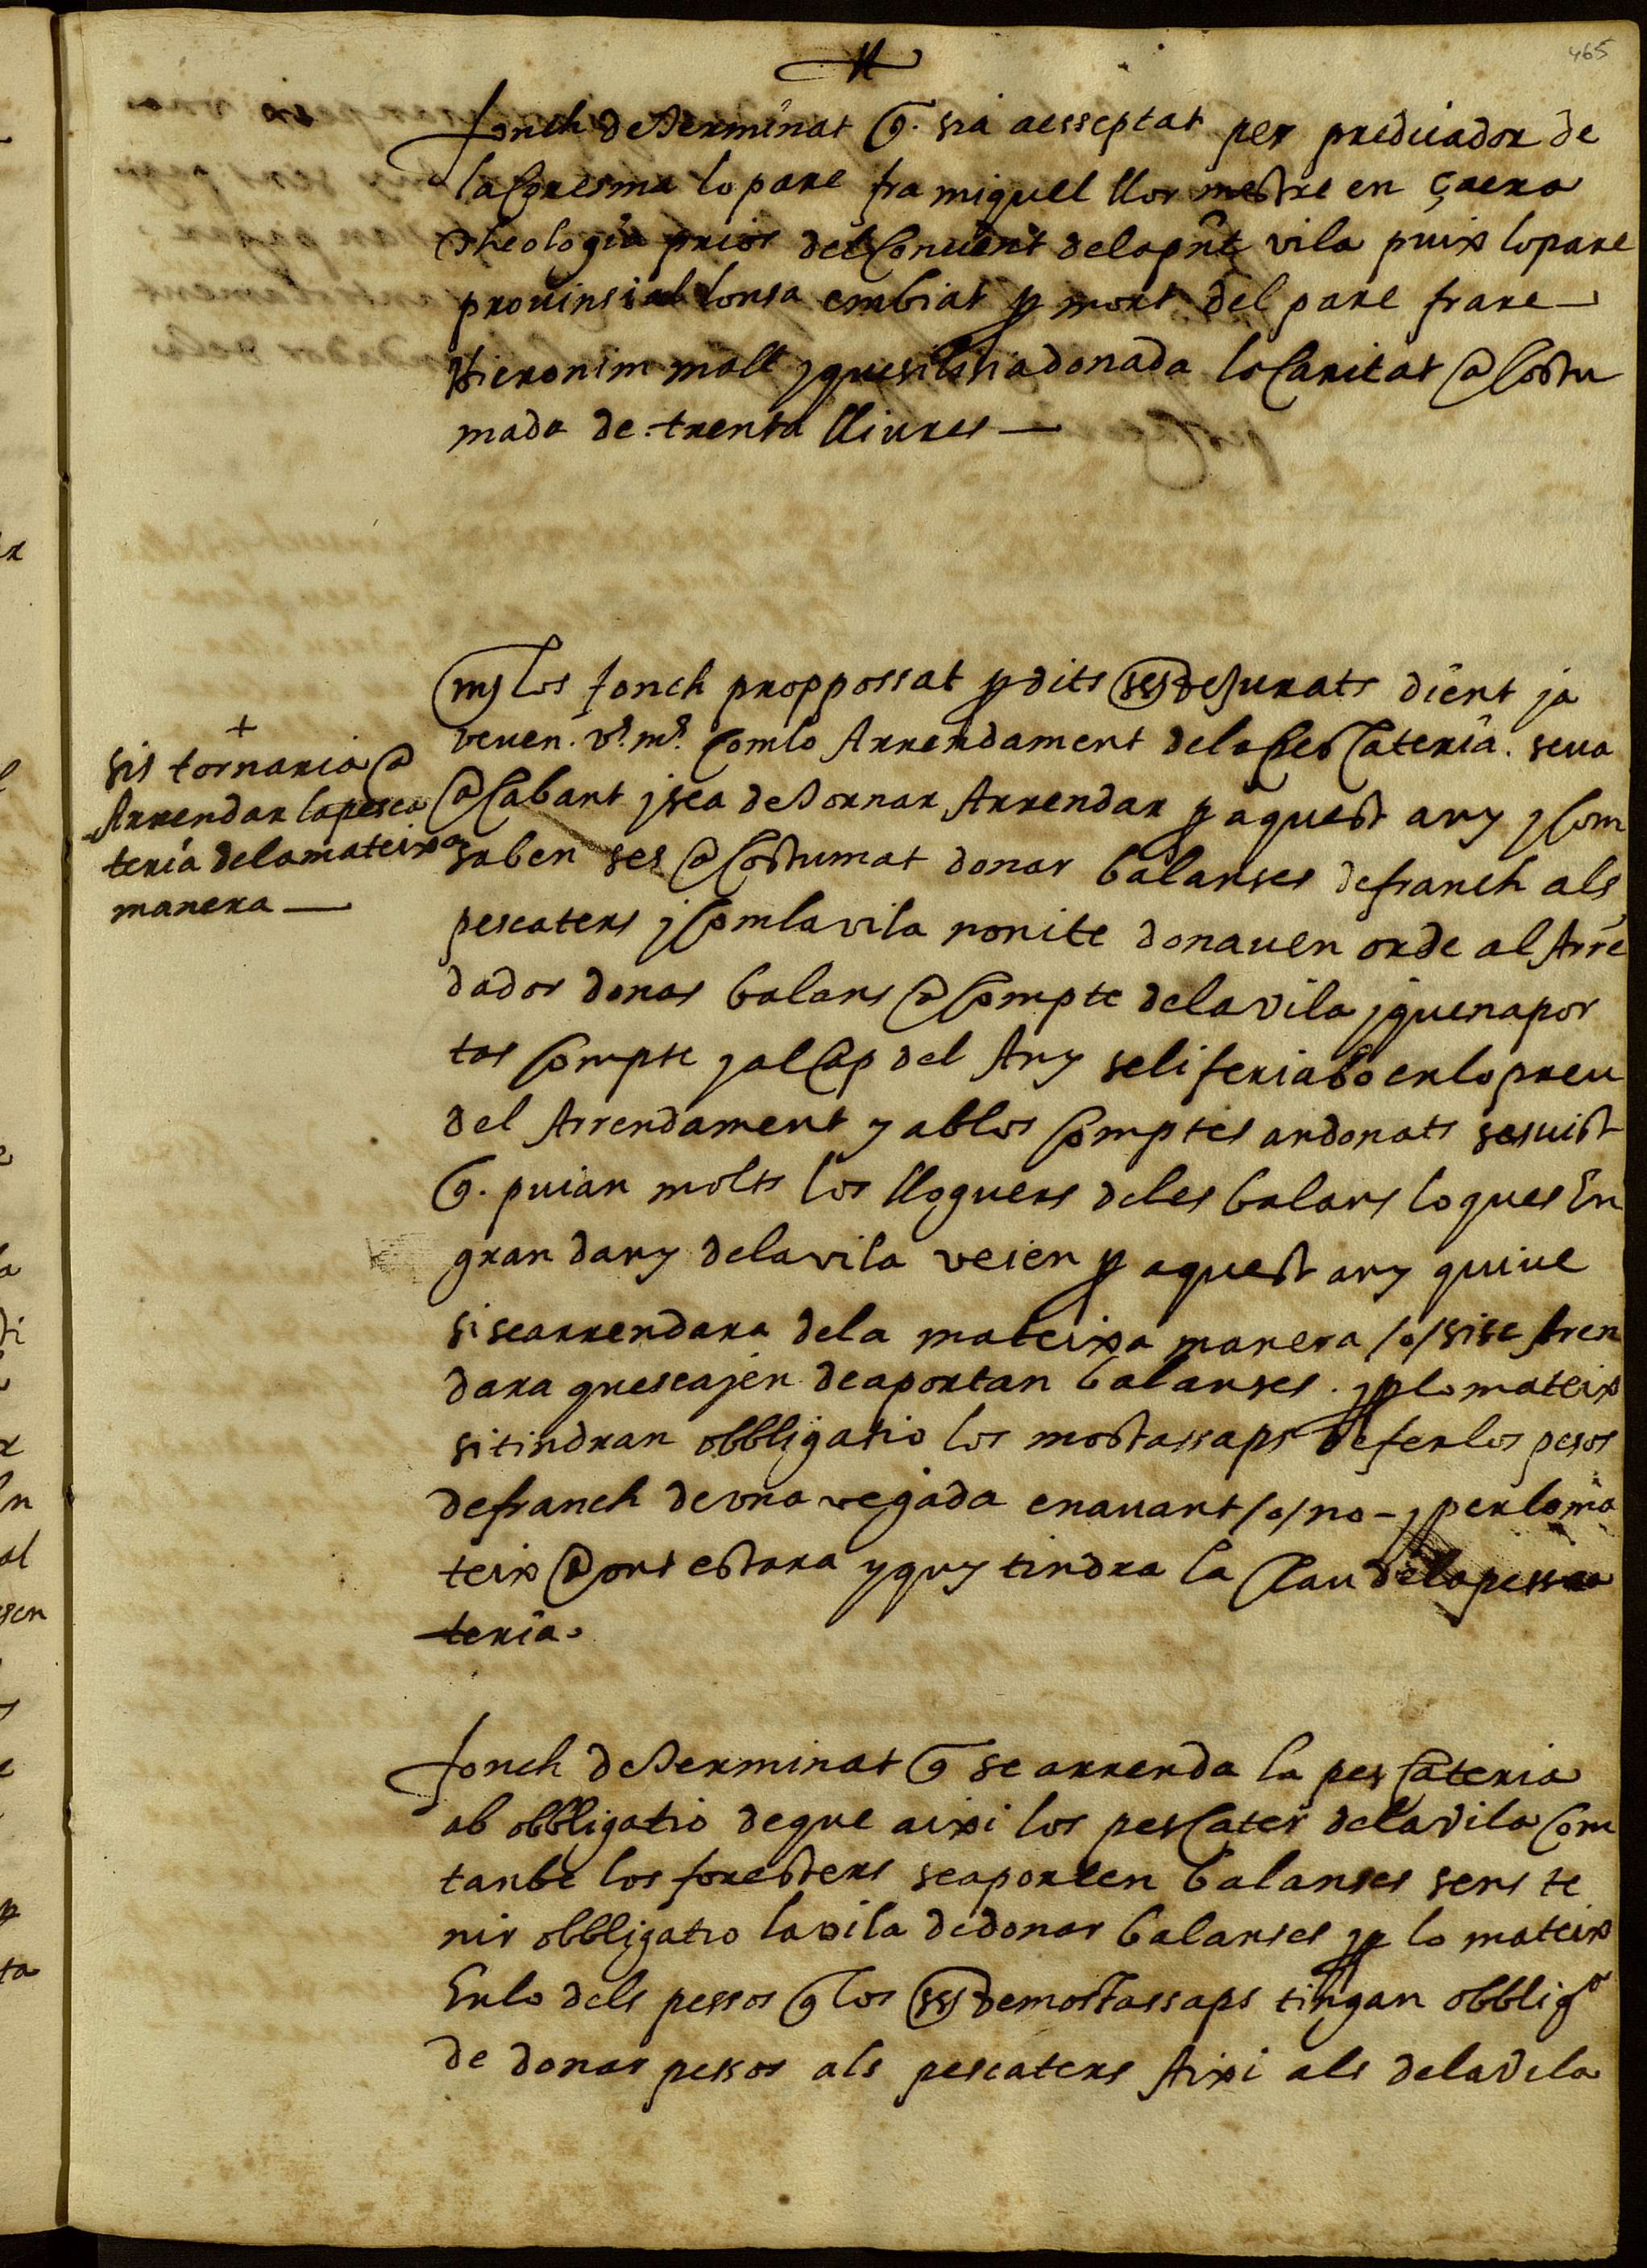 465
fonch determinat q. sia aesseptat per predicador de
la Coresma lo pare fra miquel llor mestre en çacra
theologia prior del Convent de la pnt vila puix lo pare
provinsial lons a embiat p mort del pare frare
Hieronim mall y que sili sia donada la Caritat a Costu
mada de trenta lliures
mes los fonch proppossat p dits ses de Jurats dient ja
veuen. vs. ms. Com lo Arrendament de la Pes Cateria. se va
a Cabant y sea de tornar Arrendar p aquest any y Com
saben ses a Costumat donar balanses de franch als
pescaters y Com la vila no ni te donaven orde al Arre
dador donas balans a Compte de la vila y quen a por
tas Compte y al Cap del Any seli feria bo en lo preu
del Arrendament y ab los Comptes an donats se s vist
q. puian molts los lloguers de les balans lo ques En
gran dany de la vila veien p aquest any qui ve
si se arrendara de la mateixa manera /o/ si se Aren
dara que se ajen de aportan balanses. y p lo mateix
si tindran obbligatio los mostassaps de fer los pesos
de franch de una vegada en avant /o/ no - y per lo ma
teix a ont estara y quy tindra la Clau de la pessca
teria.
+
sis tornaria a
Arrendar la pesca
teria de la mateixa
manera
fonch determinat q se arrenda la pes Cateria
ab obbligatio de que aixi los pes Caters de la vila Com
tanbe los foresters se aporten balanses sens te
nir obbligatio la vila de donar balanses y p lo mateix
En lo dels pessos q los ses de mostassaps tingan obbligo
de donar pessos als pescaters Aixi als de la vila